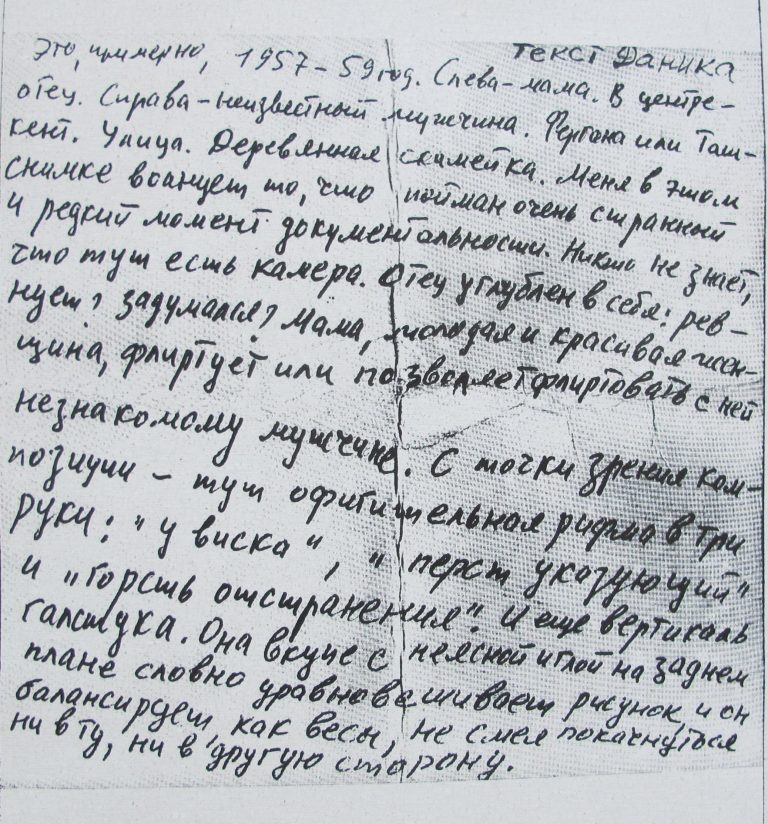 текст Даника
Это, примерно, 1957-59 год. Слева-мама. В центре-
отец. Справа-неизвестный мужчина. Фергана или Таш-
кент. Улица. Деревянная скамейка. Меня в этом
снимке волнует то, что пойман очень странный
и редкий момент документальности. Никто не знает,
что тут есть камера. Отец углублен в себя: рев-
нует? задумался? Мама, молодая и красивая жен-
щина, флиртует или позволяет флиртовать с ней
незнакомому мужчине. С точки зрения ком-
позиции - тут офитительная рифма в три
руки: "у виска", "перст указующий"
и "горсть отстранения". И еще вертикаль
галстука. Она вкупе с неясной иглой на заднем
плане словно уравновешивает рисунок, и он
балансирует, как весы, не смея покачнуться
ни в ту, ни в другую сторону.